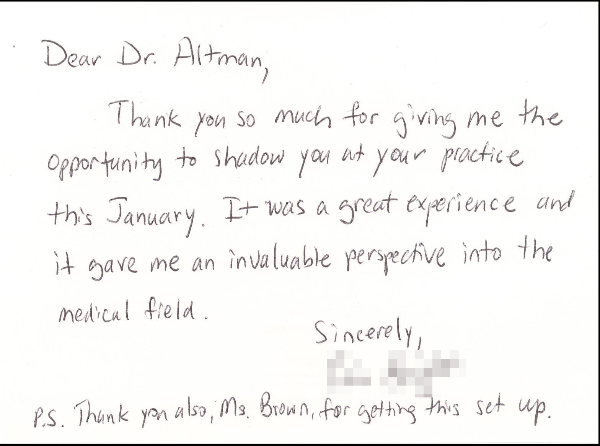 Dear Dr. Altman,
Thank you so much for giving me the
opportunity to shadow you at your practice
this January. It was a great experience and
it gave me an invaluable perspective into the
medical field.
Sincerely,
P.S. Thank you also, Ms. Brown, for getting this set up.